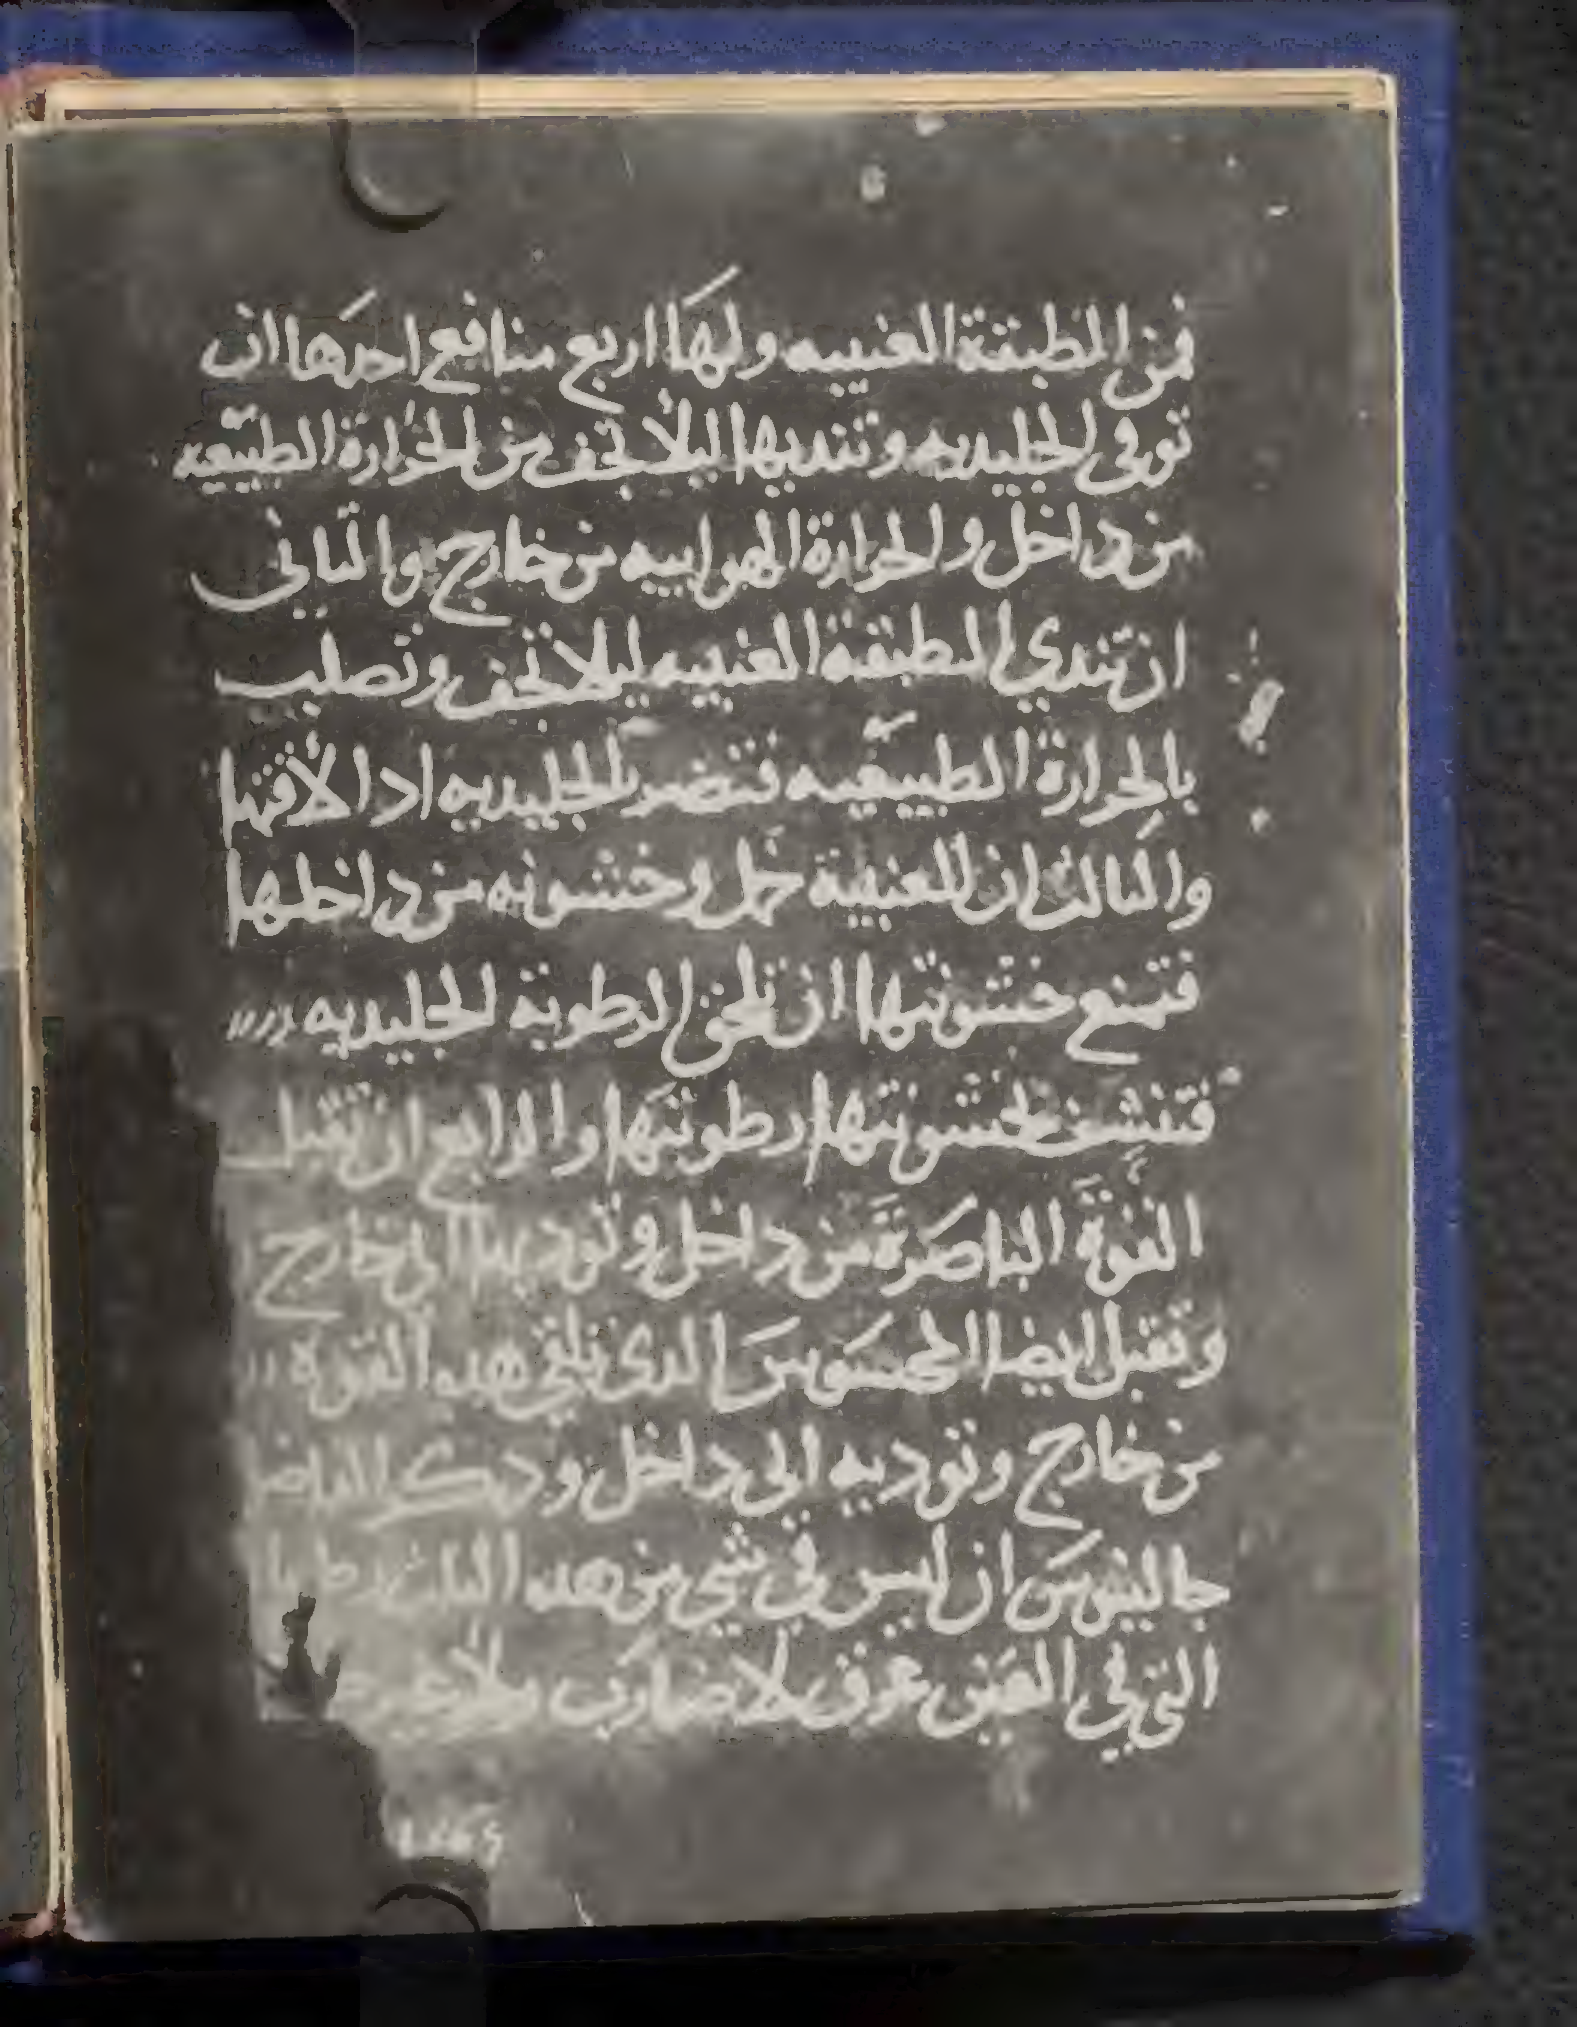 فمن الطبقة العنبيه ولها اربع منافع احدها ان
توقي الجليديه وتنديها ليلا تجف من الحرارة الطبيعيه
من داخل والحرارة الهواييه من خارج والتاني
ان تندي الطبقة العنبيه ليلا تجف وتصلب
بالحرارة الطبيعيه فتضر بالجليديه اد الاقتها
والتالت ان للعنبية خمل وخشونه من داخلها
فتمنع خشونتها ان تلحق الرطوبة الجليديه
فتنشف بخشونتها رطوبتها والرابع ان تقبل
القوة الباصرة من داخل وتوديها الى خارج
وتقبل ايضا المحسوس الدى تلقى هده القوة
من خارج وتوديه الى داخل ودكر
جالينوس ان ليس في شي من هده التلت
التي في العين عرق لا ضارب ولا غير